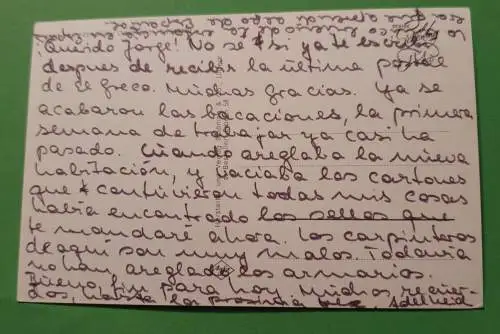 ¡Querido Jorge! No sé si ya te escribí
despues de recibir la última postal
de el Greco. Muchas gracias. Ya se
acabaron las bacaciones, la primera
semana de trabajar ya casi ha
pasado. Cuando areglaba la nueva
habitación, y vaciaba los cartones
que contuvieron todas mis cosas
había encontrado los sellos que
te mandaré ahora. Los carpinteros
de aquí son muy malos. Todavía
no han areglado los armarios.
Bueno, fin para hoy. Muchos recuer-
dos, hasta la proxima vez, Adelheid